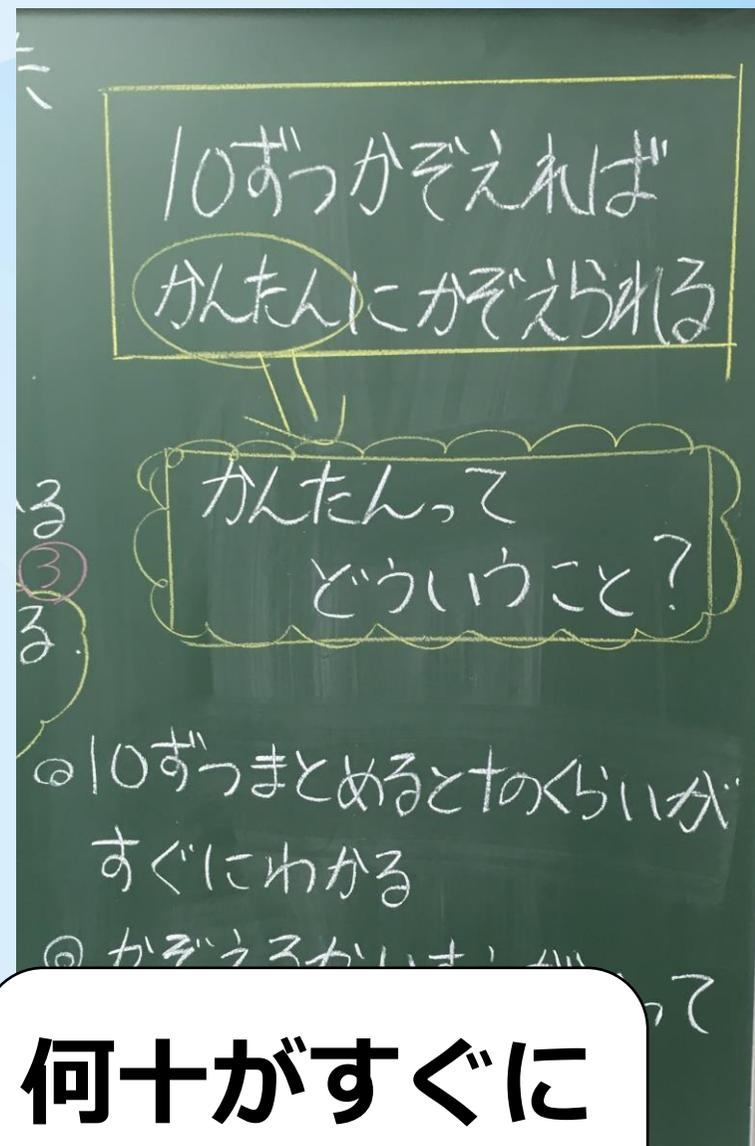 10ずつかぞえれば
かんたんにかぞえられる
かんたんって
どういうこと?
る
③
る.
◎10ずつまとめると十のくらいが
すぐにわかる
◎かぞえるかい
って
何十がすぐに